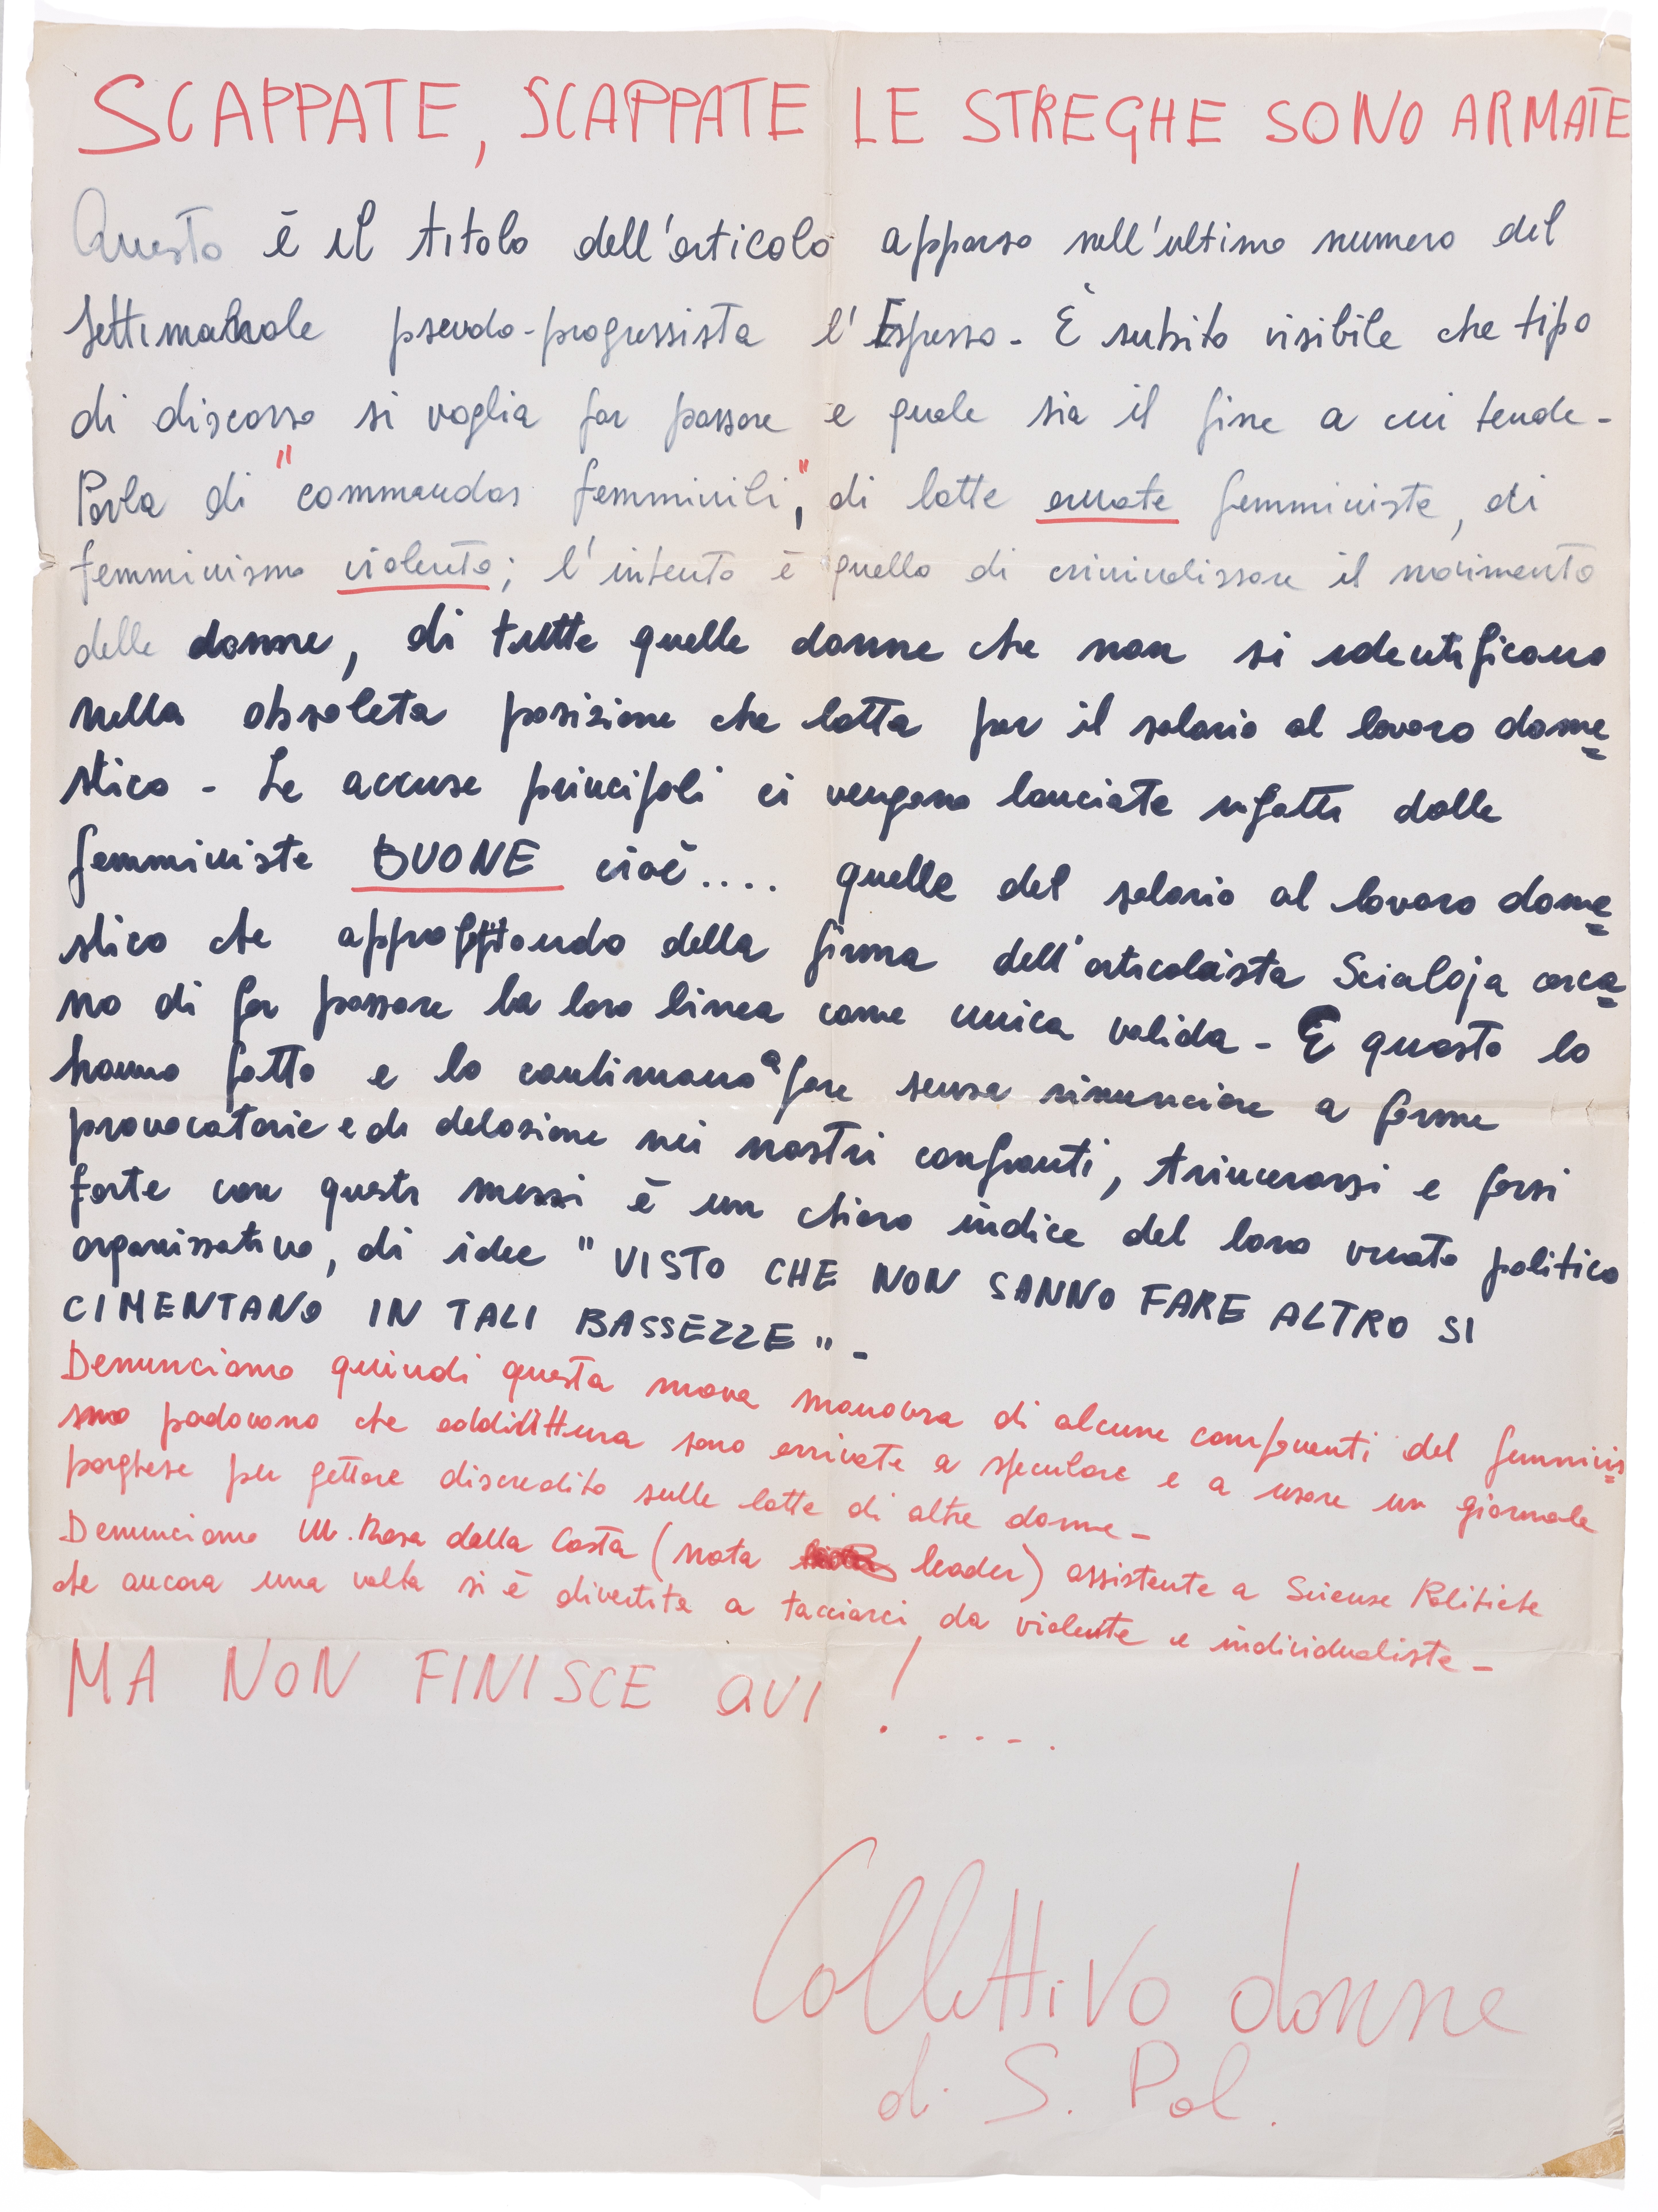 SCAPPATE, SCAPPATE LE STREGHE SONO ARMATE
Questo è il titolo dell'articolo apparso nell'ultimo numero del
settimanale pseudo-progressista l'Espresso - È subito visibile che tipo
di discorso si voglia far passare e quale sia il fine a cui tende -
Parla di "commandos femminili", di lotte armate femministe, di
femminismo violento; l'intento è quello di criminalissare il movimento
delle donne, di tutte quelle donne che non si identificano
nella obsoleta posizione che lotta per il salario al lavoro dome=
stico - Le accuse principali ci vengono lanciate infatti dalle
femministe BUONE cioè.... quelle del salario al lavoro dome=
stico che approfittando della firma dell'articolista Scialoja cerca=
no di far passare la loro linea come unica valida - E questo lo
hanno fatto e lo continuano a fare senza rinunciare a forme
provocatorie e di delazione nei nostri confronti, trincerarsi e farsi
forte con questi mezzi è un chiaro indice del loro vuoto politico
organissativo, di idee "VISTO CHE NON SANNO FARE ALTRO SI
CIMENTANO IN TALI BASSEZZE" -
Denunciamo quindi questa nuova manovra di alcune componenti del femminis=
smo padovano che addirittura sono arrivate a speculare e a usare un giornale
borghese per gettare discredito sulle lotte di altre donne -
Denunciamo M. Rosa dalla Costa (nota leader) assistente a Sciense Politiche
che ancora una volta si è divertita a tacciarci da violente e individualiste -
MA NON FINISCE QUI !....
Collettivo donne
di S. Pol.